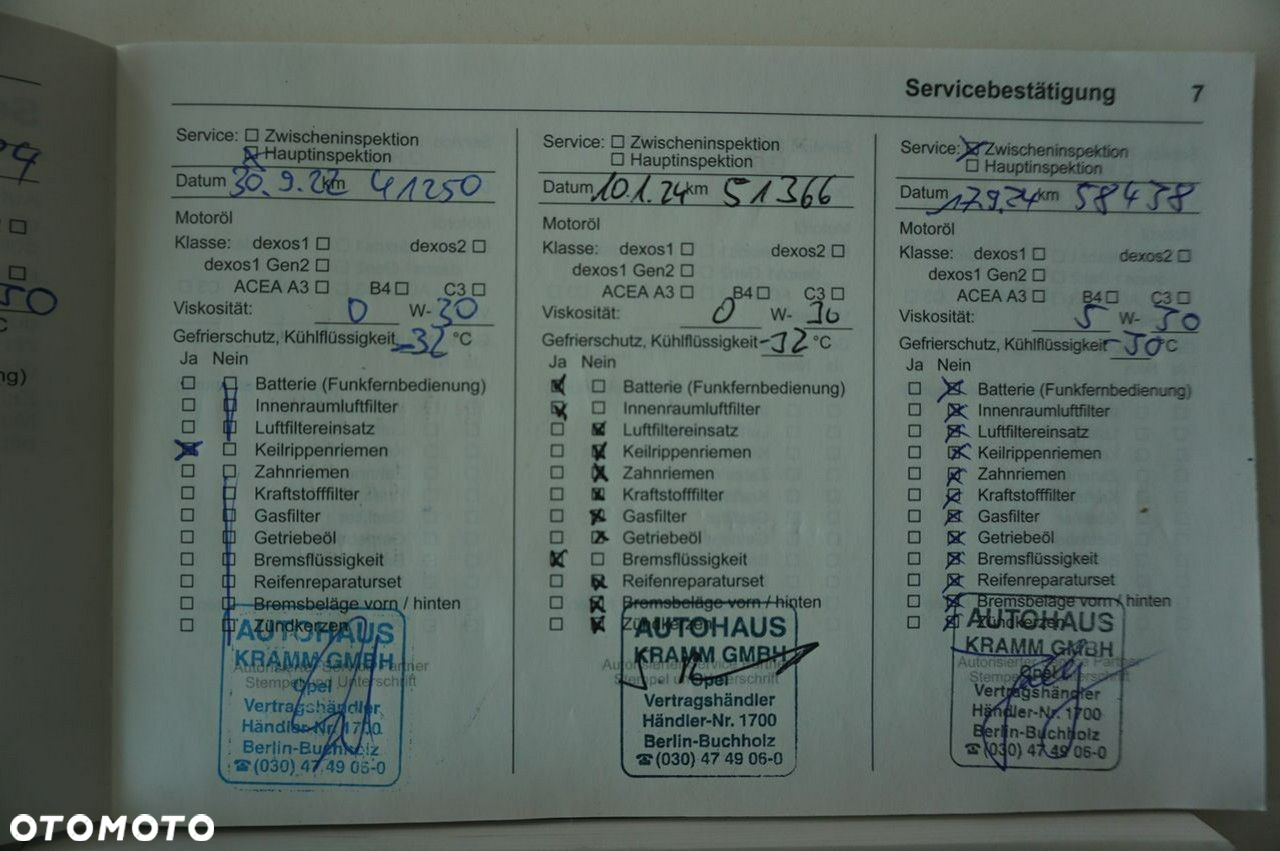 Servicebestätigung 7
Service: Zwischeninspektion
Hauptinspektion
Datum 30.9.22 km 41250
Motoröl
Klasse: dexos1 dexos2
dexos1 Gen2
ACEA A3 B4 C3
Viskosität: 0 W-30
Gefrierschutz, Kühlflüssigkeit -32 °C
Ja Nein
Batterie (Funkfernbedienung)
Innenraumluftfilter
Luftfiltereinsatz
Keilrippenriemen
Zahnriemen
Kraftstofffilter
Gasfilter
Getriebeöl
Bremsflüssigkeit
Reifenreparaturset
Bremsbeläge vorn / hinten
Zündkerzen
AUTOHAUS
KRAMM GMBH
Autorisierter Service Partner
Stempel und Unterschrift
Opel
Vertragshändler
Händler-Nr. 1700
Berlin-Buchholz
☎(030) 47 49 06-0
Service: Zwischeninspektion
Hauptinspektion
Datum 10.1.24 km 51366
Motoröl
Klasse: dexos1 dexos2
dexos1 Gen2
ACEA A3 B4 C3
Viskosität: 0 W- 30
Gefrierschutz, Kühlflüssigkeit -32 °C
Ja Nein
Batterie (Funkfernbedienung)
Innenraumluftfilter
Luftfiltereinsatz
Keilrippenriemen
Zahnriemen
Kraftstofffilter
Gasfilter
Getriebeöl
Bremsflüssigkeit
Reifenreparaturset
Bremsbeläge vorn / hinten
Zündkerzen
AUTOHAUS
KRAMM GMBH
Autorisierter Service Partner
Stempel und Unterschrift
Opel
Vertragshändler
Händler-Nr. 1700
Berlin-Buchholz
☎(030) 47 49 06-0
Service: Zwischeninspektion
Hauptinspektion
Datum 17.9.24 km 58438
Motoröl
Klasse: dexos1 dexos2
dexos1 Gen2
ACEA A3 B4 C3
Viskosität: 5 W- 30
Gefrierschutz, Kühlflüssigkeit -30 °C
Ja Nein
Batterie (Funkfernbedienung)
Innenraumluftfilter
Luftfiltereinsatz
Keilrippenriemen
Zahnriemen
Kraftstofffilter
Gasfilter
Getriebeöl
Bremsflüssigkeit
Reifenreparaturset
Bremsbeläge vorn / hinten
Zündkerzen
AUTOHAUS
KRAMM GMBH
Autorisierter Service Partner
Stempel und Unterschrift
Opel
Vertragshändler
Händler-Nr. 1700
Berlin-Buchholz
☎(030) 47 49 06-0
OTOMOTO